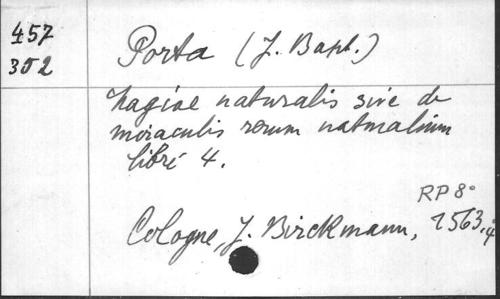 457
352
Porta (J. Bapt.)
Magiae naturalis sive de
miraculis rerum naturalium
libri 4.
RP 8°
Cologne, J. Birckmann, 1563.